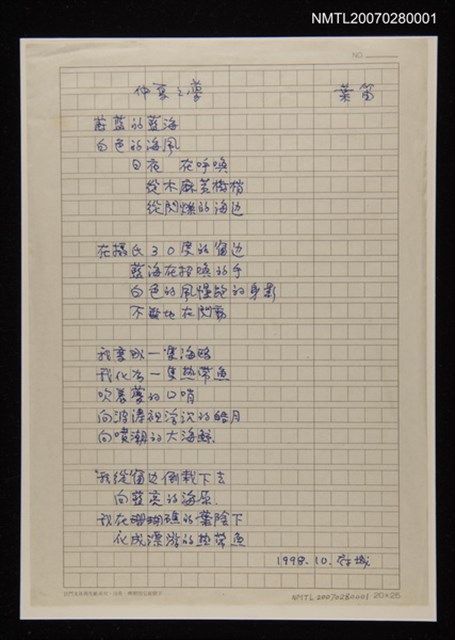 NMTL20070280001
NO.
仲夏之夢 葉笛
蔚藍的藍海
白色的海風
日夜 在呼喚
從木麻黃樹梢
從閃爍的海边
在攝氏30度的窗边
藍海在招喚的手
白色的風 的身影
不 地在閃動
我變成一隻海鷗
我化為一隻热带鱼
吹着夢的口哨
向波濤裡浮沉的皓月
向噴潮的大海鯨
我從窗边倒栽下去
向蔚亮的海原
我在珊瑚礁的葉陰下
化成漂游的热带鱼
1998.10. 府城
NMTL20070280001 20×25